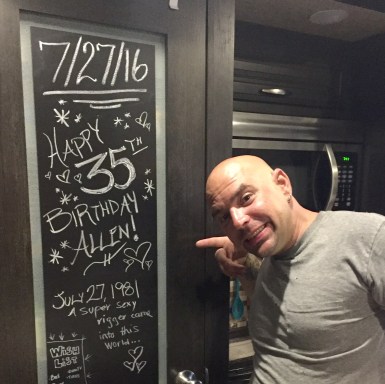 7/27/16
HAPPY
35TH
BIRTHDAY
ALLEN!
JULY 27, 1981
a super sexy
rigger came
into this
world...
WISH
LIST